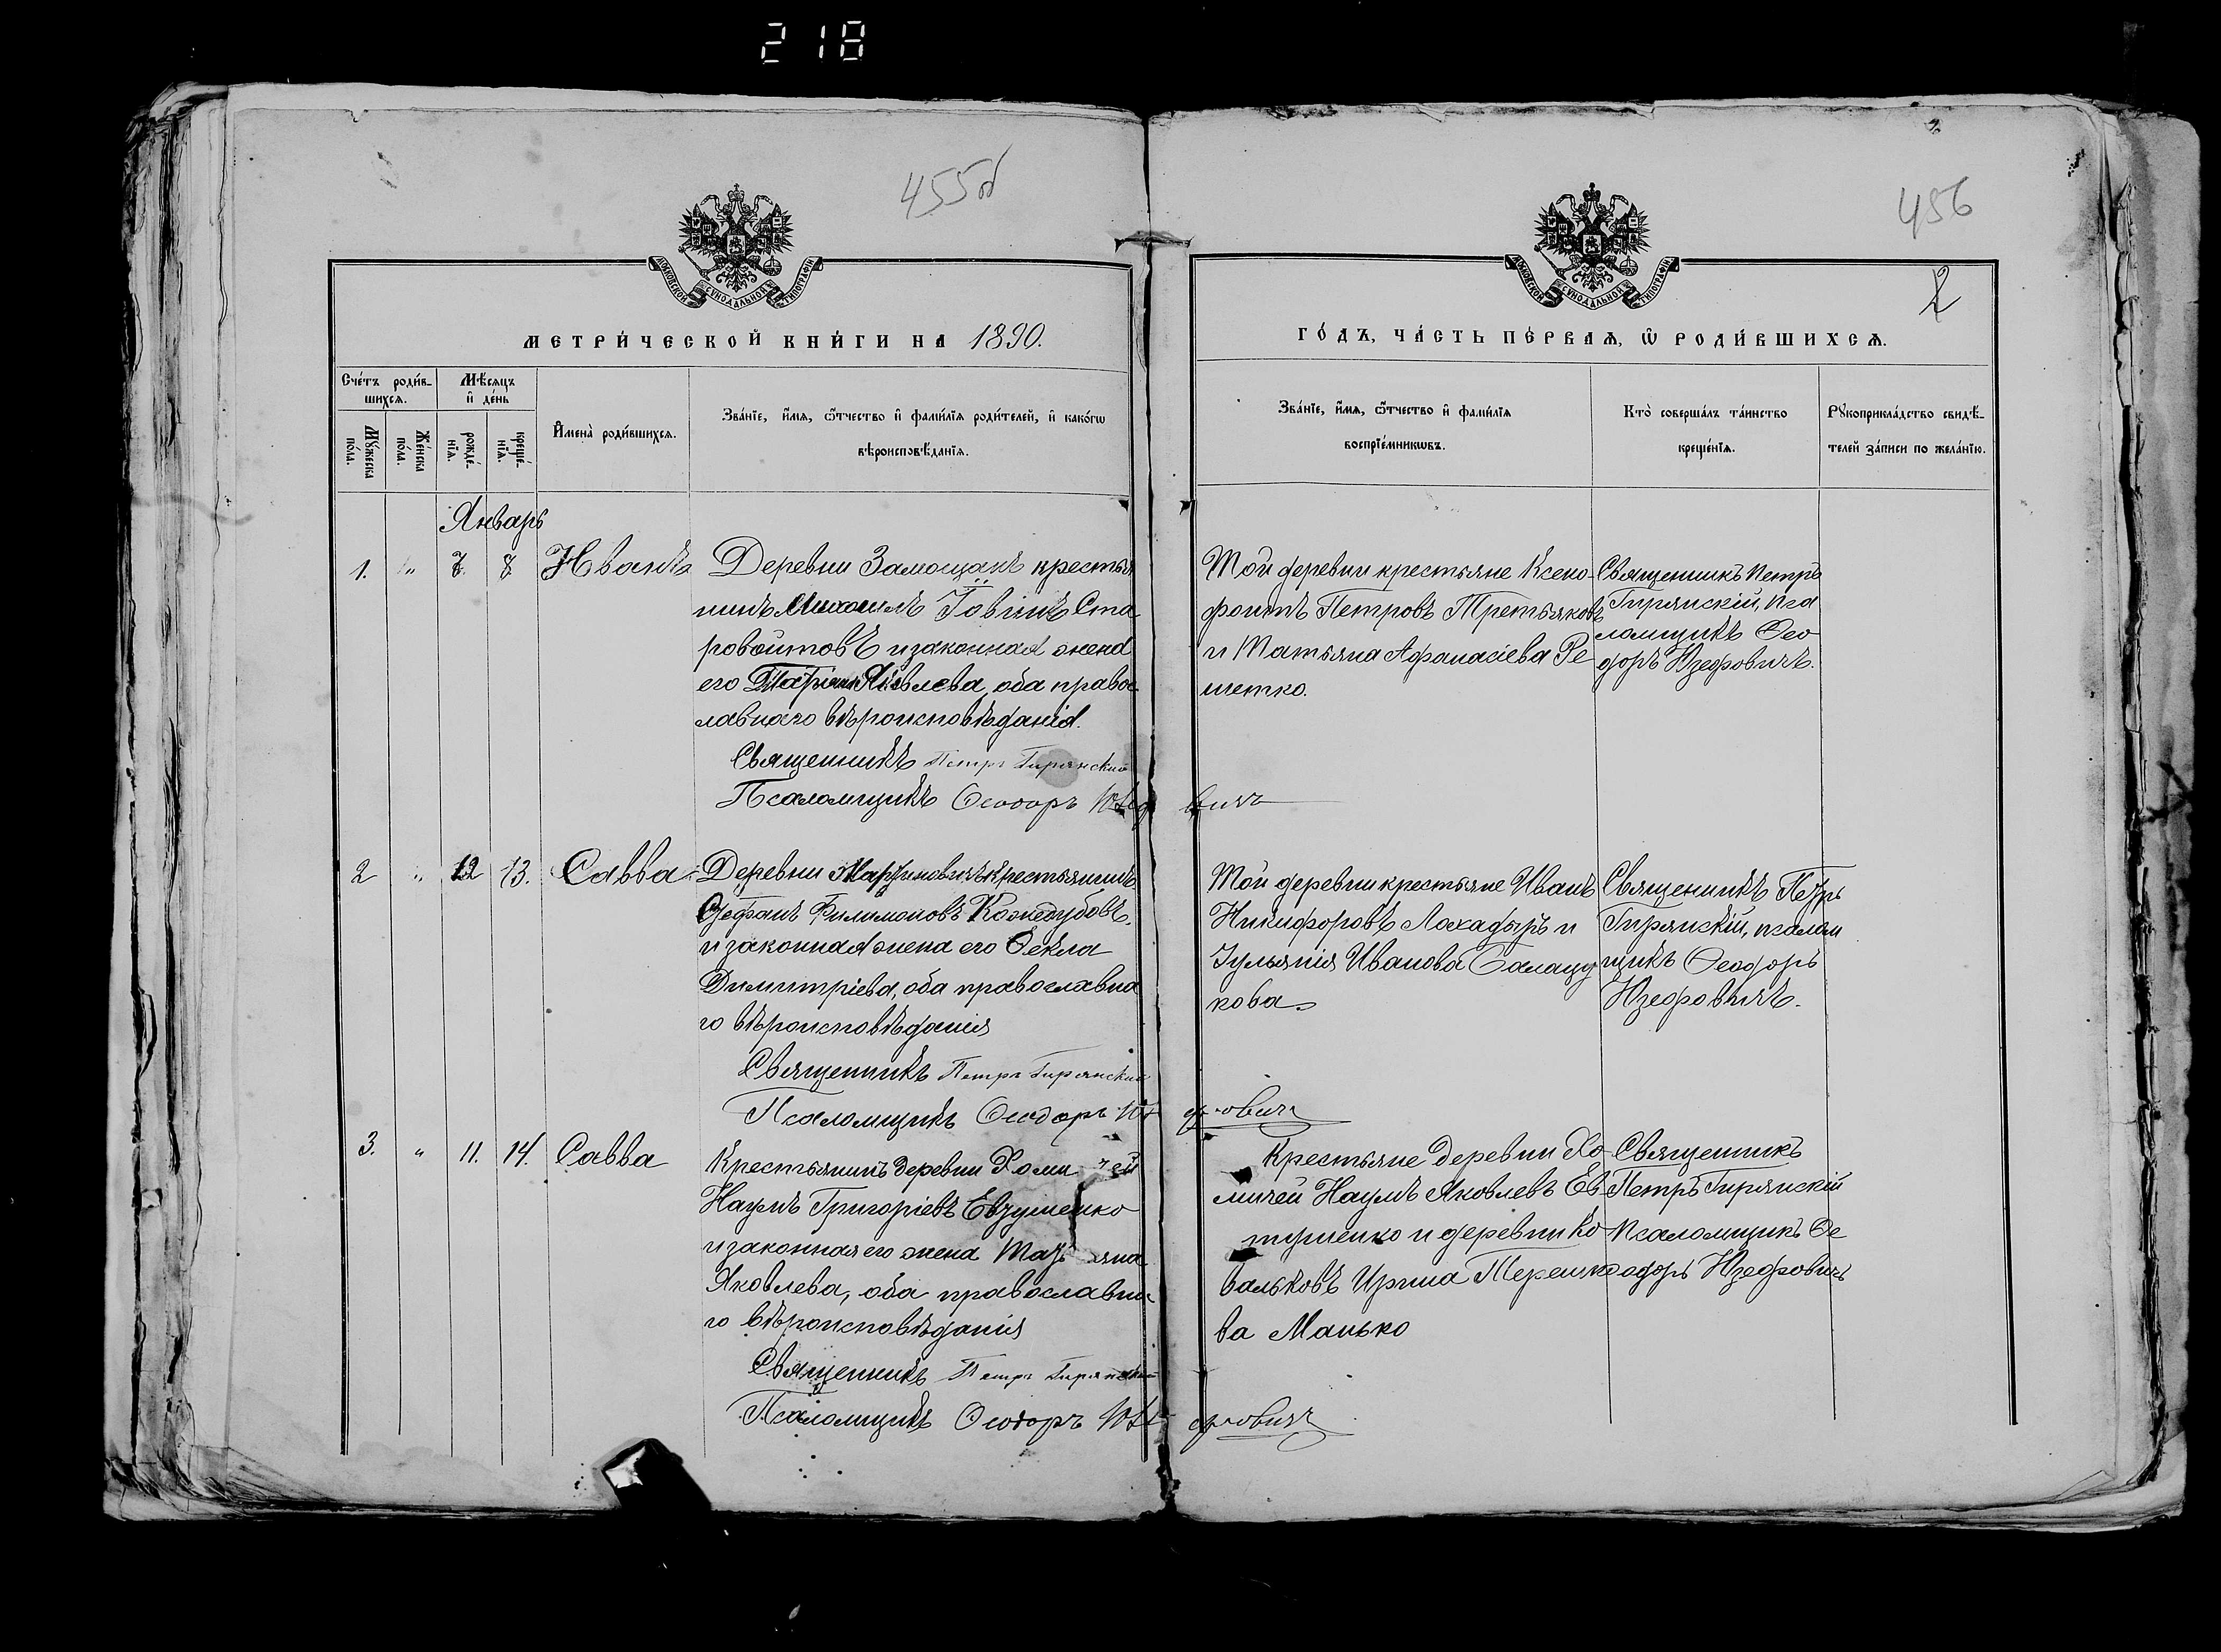 218
455об
456
2
МОСКОВСКОЙ СѴНОДАЛЬНОЙ ТИПОГРАФІИ
МОСКОВСКОЙ СѴНОДАЛЬНОЙ ТИПОГРАФІИ
МЕТРИ́ЧЕСКОЙ КНИ́ГИ НА 1890.
ГО́ДЪ, ЧА́СТЬ ПЕ́РВАѦ, Ѡ РОДИ́ВШИХСѦ.
Сче́тъ роди́в-
шихсѧ.
Мѣ́сѧцъ
и҆ де́нь
Мꙋ́жеска
по́ла.
Же́нска
по́ла.
рожде́-
нїѧ.
креще́-
нїѧ.
И҆мена̀ роди́вшихсѧ.
Зва́нїе, и҆́мѧ, ѻ҆́тчество и҆ фами́лїѧ роди́телей, и҆ како́гѡ
вѣроисповѣ́данїѧ.
Зва́нїе, и҆́мѧ, ѻ҆́тчество и҆ фами́лїѧ
воспрїе́мникѡвъ.
Кто̀ соверша́лъ та́инство
креще́нїѧ.
Рꙋкоприкла́дство свидѣ́-
телей за́писи по жела́нїю.
Январь
1. " 7. 8. Иванъ
Деревни Замощанъ крестья
нинъ Михаилъ Іовинъ Ста
ровойтовъ и законная жена
его Яковлева, оба правос
лавнаго вѣроисповѣданія.
Священникъ Петръ Гирянскій
Псаломщикъ Ѳеодоръ вичъ
Той деревни крестьяне Ксено-
фонтъ Петровъ Третьяковъ
и Татьяна Афанасіева Ре
шетко.
Священникъ Петръ
Гирянскій, пса
ломщикъ Ѳео
доръ Юзефовичъ.
2 " 12 13. Савва
Деревни Мартиновичъ крестьянинъ
Стефанъ Филимоновъ Кожедубовъ.
и законная жена его Ѳекла
Димитріева, оба православна
го вѣроисповѣданія
Священникъ Петръ Гирянскій
Псаломщикъ Ѳеодоръ Юзефовичъ
Той деревни крестьяне Иванъ
Никифоровъ и
Іульянія Иванова
кова
Священникъ Петръ
Гирянскій, псалом
щикъ Ѳеодоръ
Юзефовичъ.
3. " 11. 14. Савва
Крестьянинъ деревни Хомичей
Наумъ Григоріевъ Евтушенко
и законная его жена Татьяна
Яковлева, оба православна
го вѣроисповѣданія
Священникъ Петръ Гирянскій
Псаломщикъ Ѳеодоръ Юзефовичъ
Крестьяне деревни Хо
мичей Наумъ Яковлевъ Ев
тушенко и деревни Ко
вальковъ Ирина Терешко
ва Манько
Священникъ
Петръ Гирянскій
Псаломщикъ Ѳе
одоръ Юзефовичъ